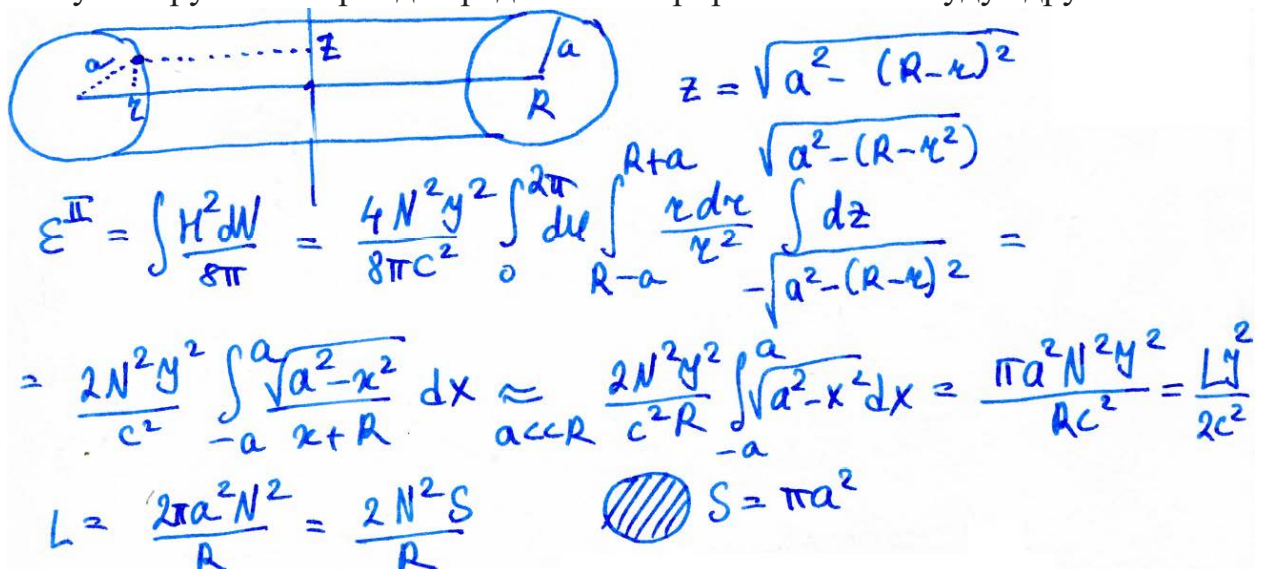 a z a
r R z = √(a² - (R-r)²)
ε^II = ∫ H²dV / 8π = 4N²y² / 8πc² ∫_0^{2π} dφ ∫_{R-a}^{R+a} rdr / r² ∫_{-√(a²-(R-r)²)}^{√(a²-(R-r²)} dz =
= 2N²y² / c² ∫_{-a}^{a} √(a²-x²) / (x+R) dx ≈_{a<<R} 2N²y² / c²R ∫_{-a}^{a} √(a²-x²) dx = πa²N²y² / Rc² = Ly² / 2c²
L = 2πa²N² / R = 2N²S / R S = πa²